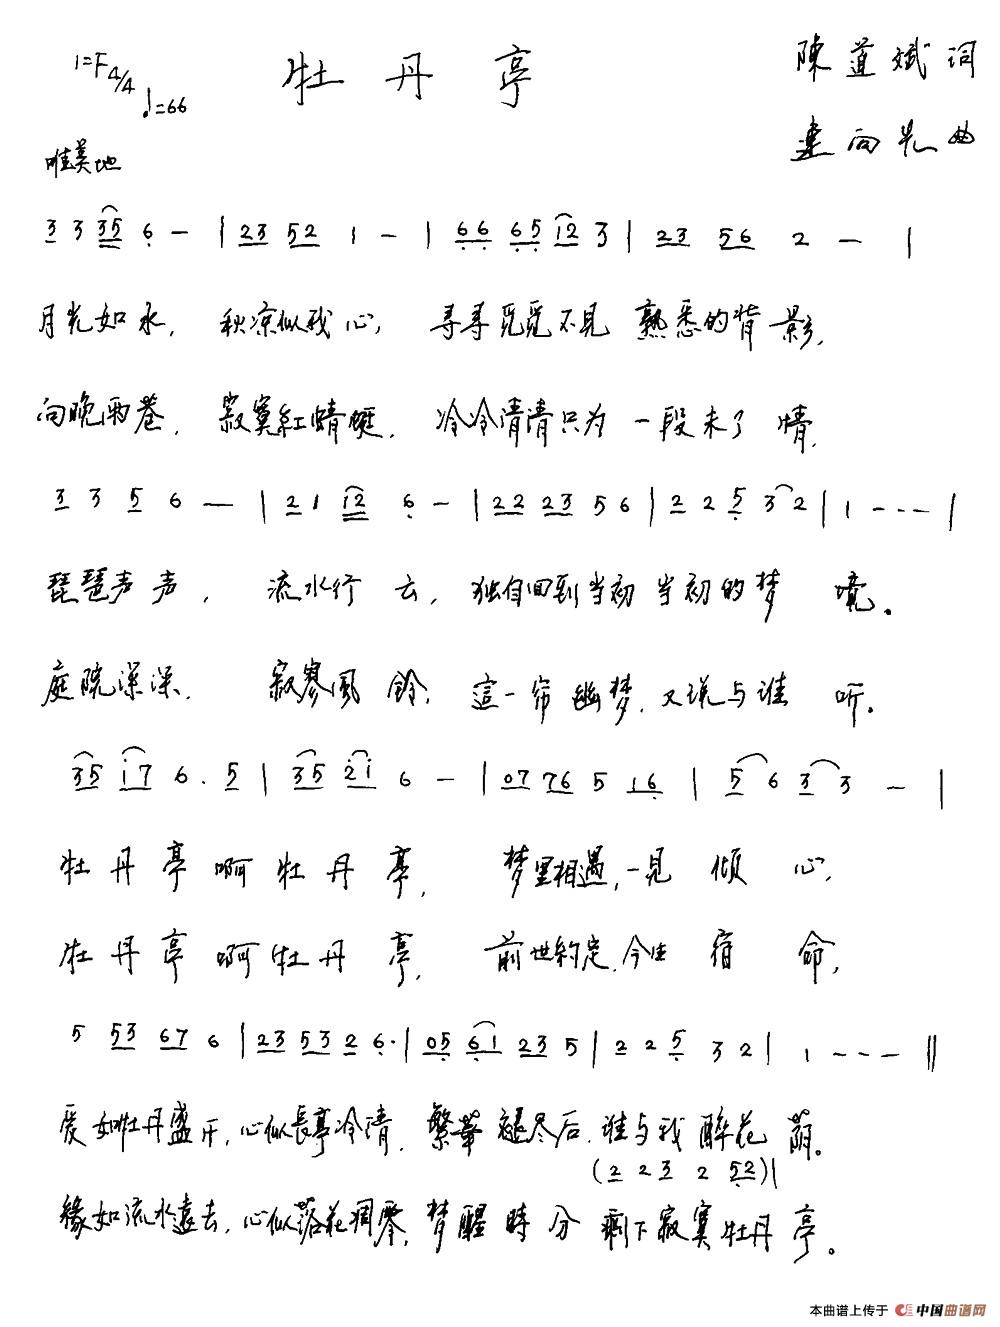 1=F 4/4 牡丹亭 陳道斌词
♩=66 連向先曲
唯美地
3 3 35 6 — | 23 52 1 — | 66 65 12 3 | 23 56 2 — |
月光如水, 秋凉似我心, 寻寻觅觅不见 熟悉的背影,
向晚雨巷, 寂寞紅蜻蜓, 冷冷清清只为 一段未了情,
3 3 5 6 — | 2 1 12 6 — | 22 23 5 6 | 2 2 5 3 2 | 1 - - - |
琵琶声声, 流水行云, 独自回到当初 当初的梦境。
庭院深深, 寂寥風鈴, 這一帘幽梦, 又说与谁听。
35 i7 6 . 5 | 35 2i 6 — | 07 76 5 16 | 5 6 3 3 — |
牡丹亭啊牡丹亭, 梦里相遇,一見傾心,
牡丹亭啊牡丹亭, 前世約定,今生宿命,
5 53 67 6 | 23 53 2 6. | 05 61 23 5 | 2 2 5 3 2 | 1 - - - ‖
爱如牡丹盛开,心似長亭冷清, 繁華褪尽后,谁与我醉花荫。
(2 2 3 2 52) |
緣如流水遠去,心似落花凋零, 梦醒時分 剩下寂寞牡丹亭。
本曲谱上传于 中国曲谱网